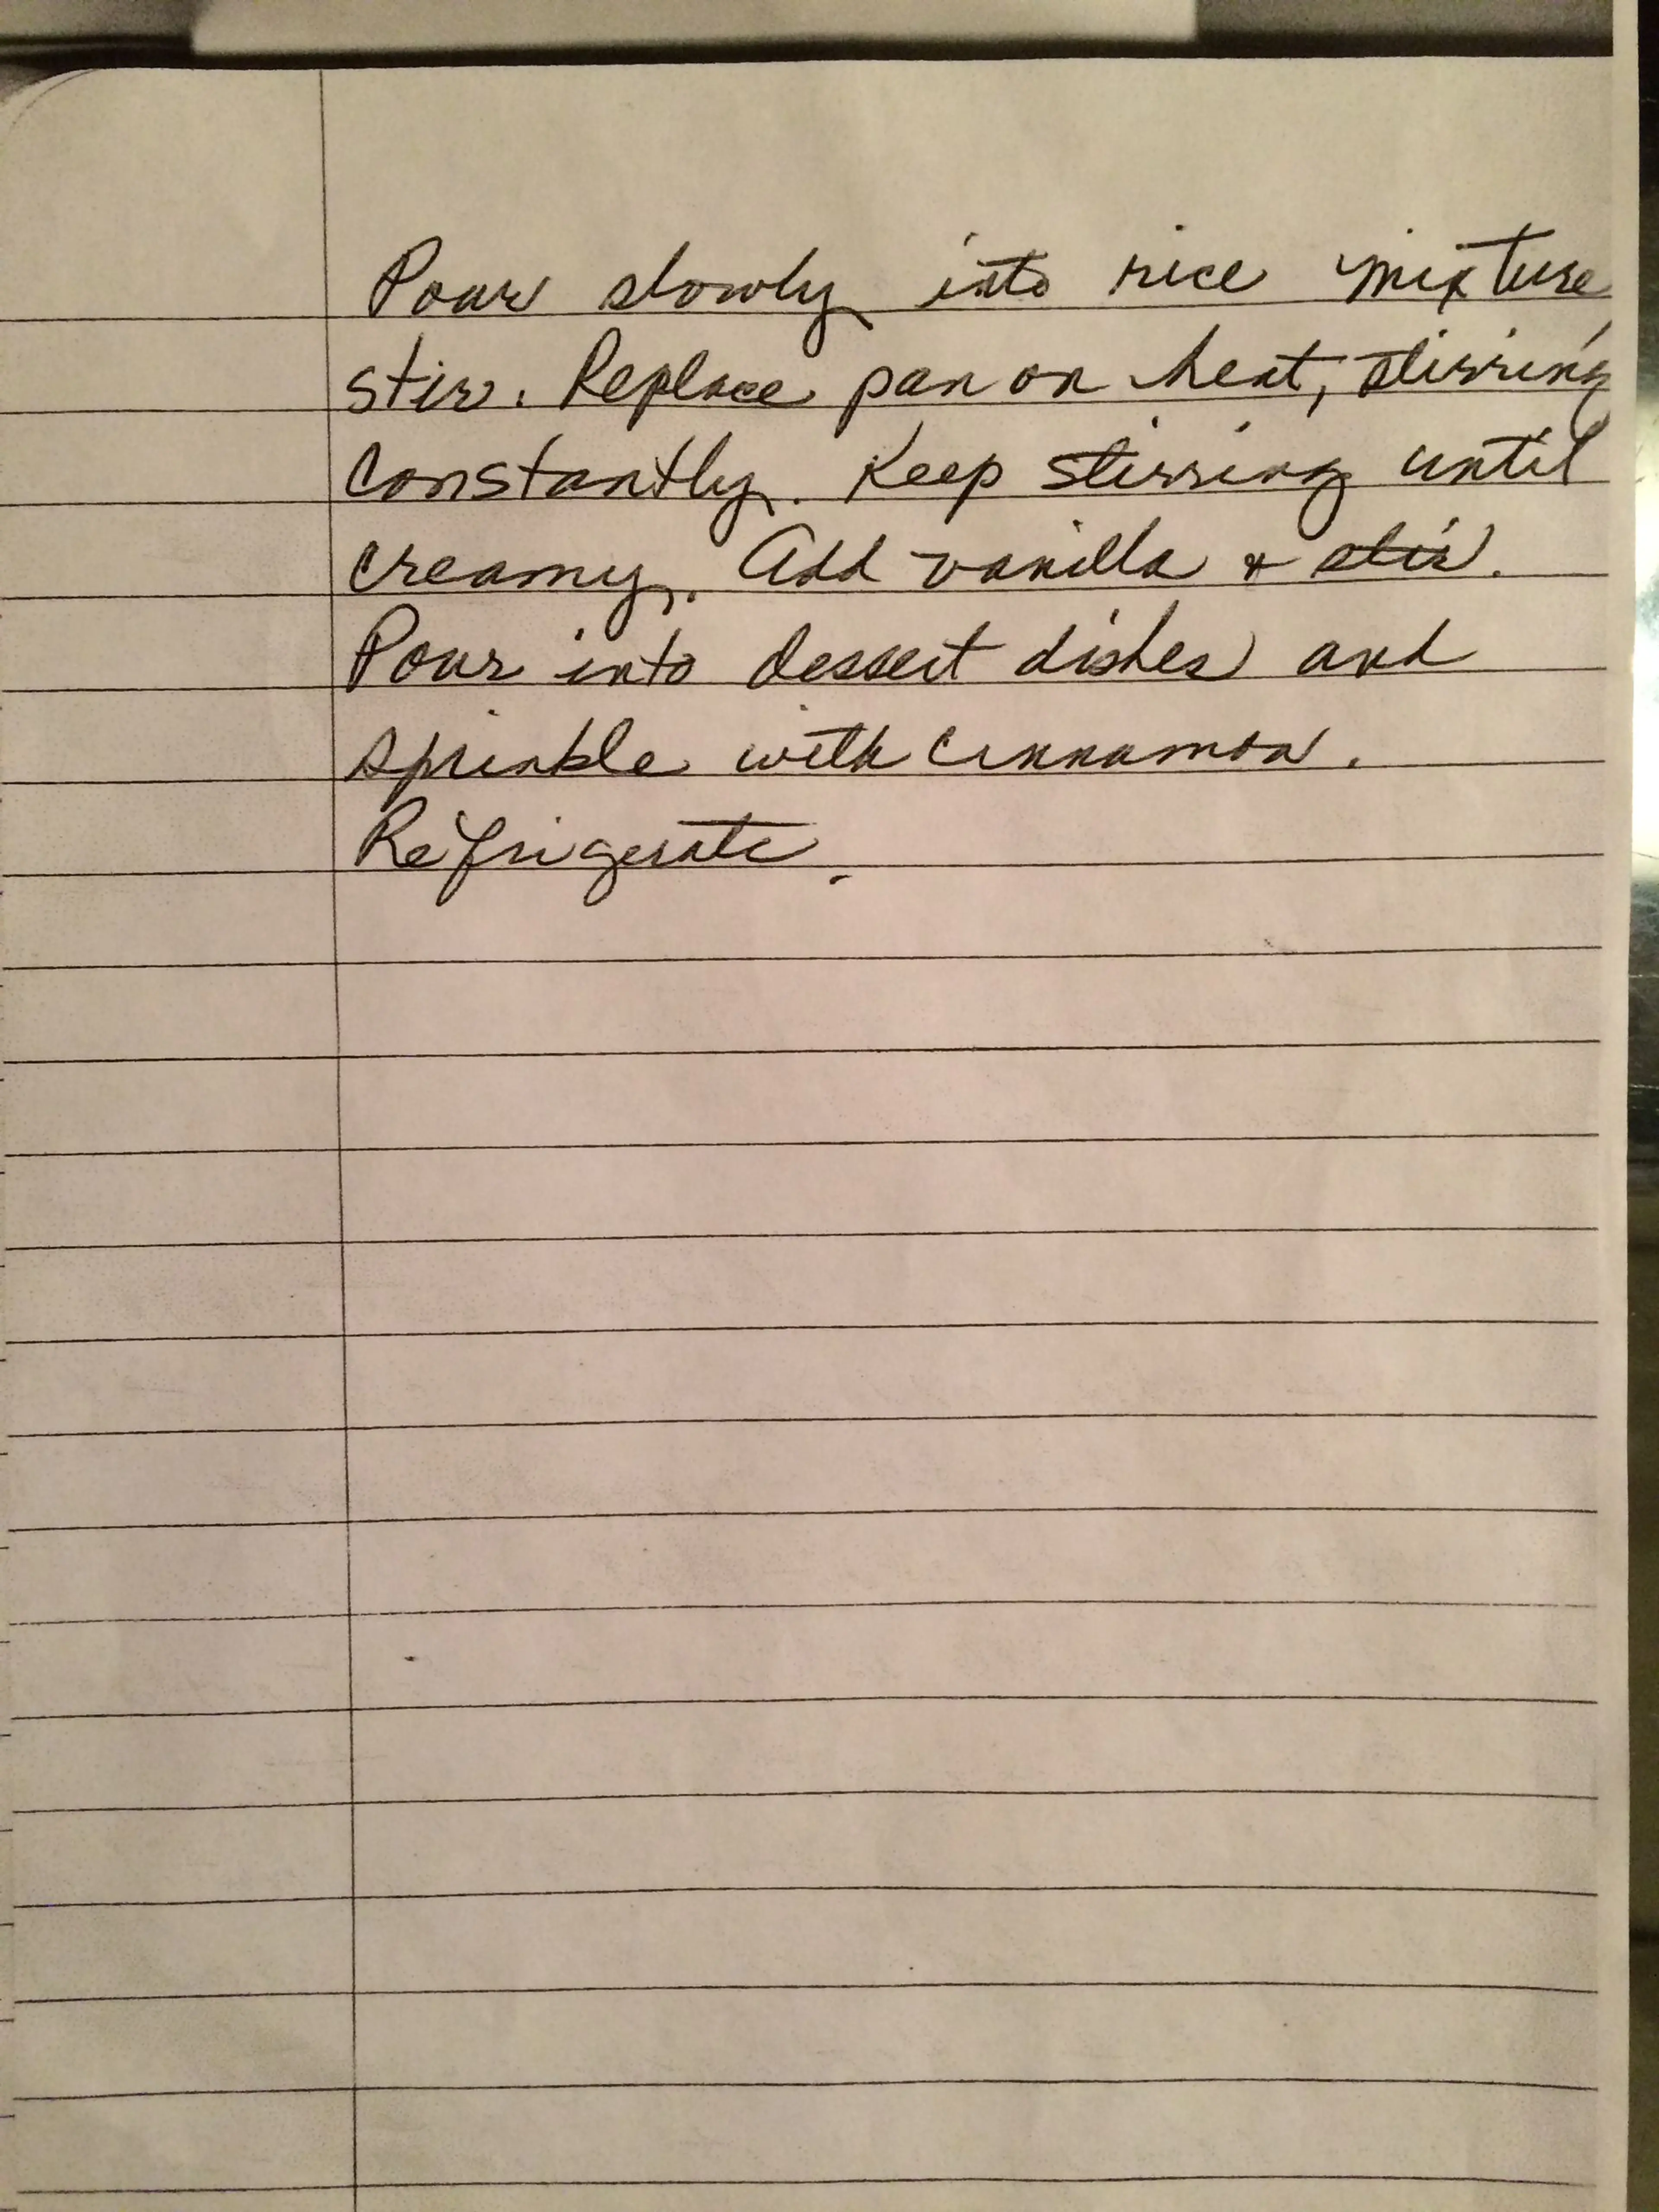 Pour slowly into rice mixture
stir. Replace pan on heat, stirring
constantly. Keep stirring until
creamy. Add vanilla & stir.
Pour into dessert dishes and
sprinkle with cinnamon.
Refrigerate.